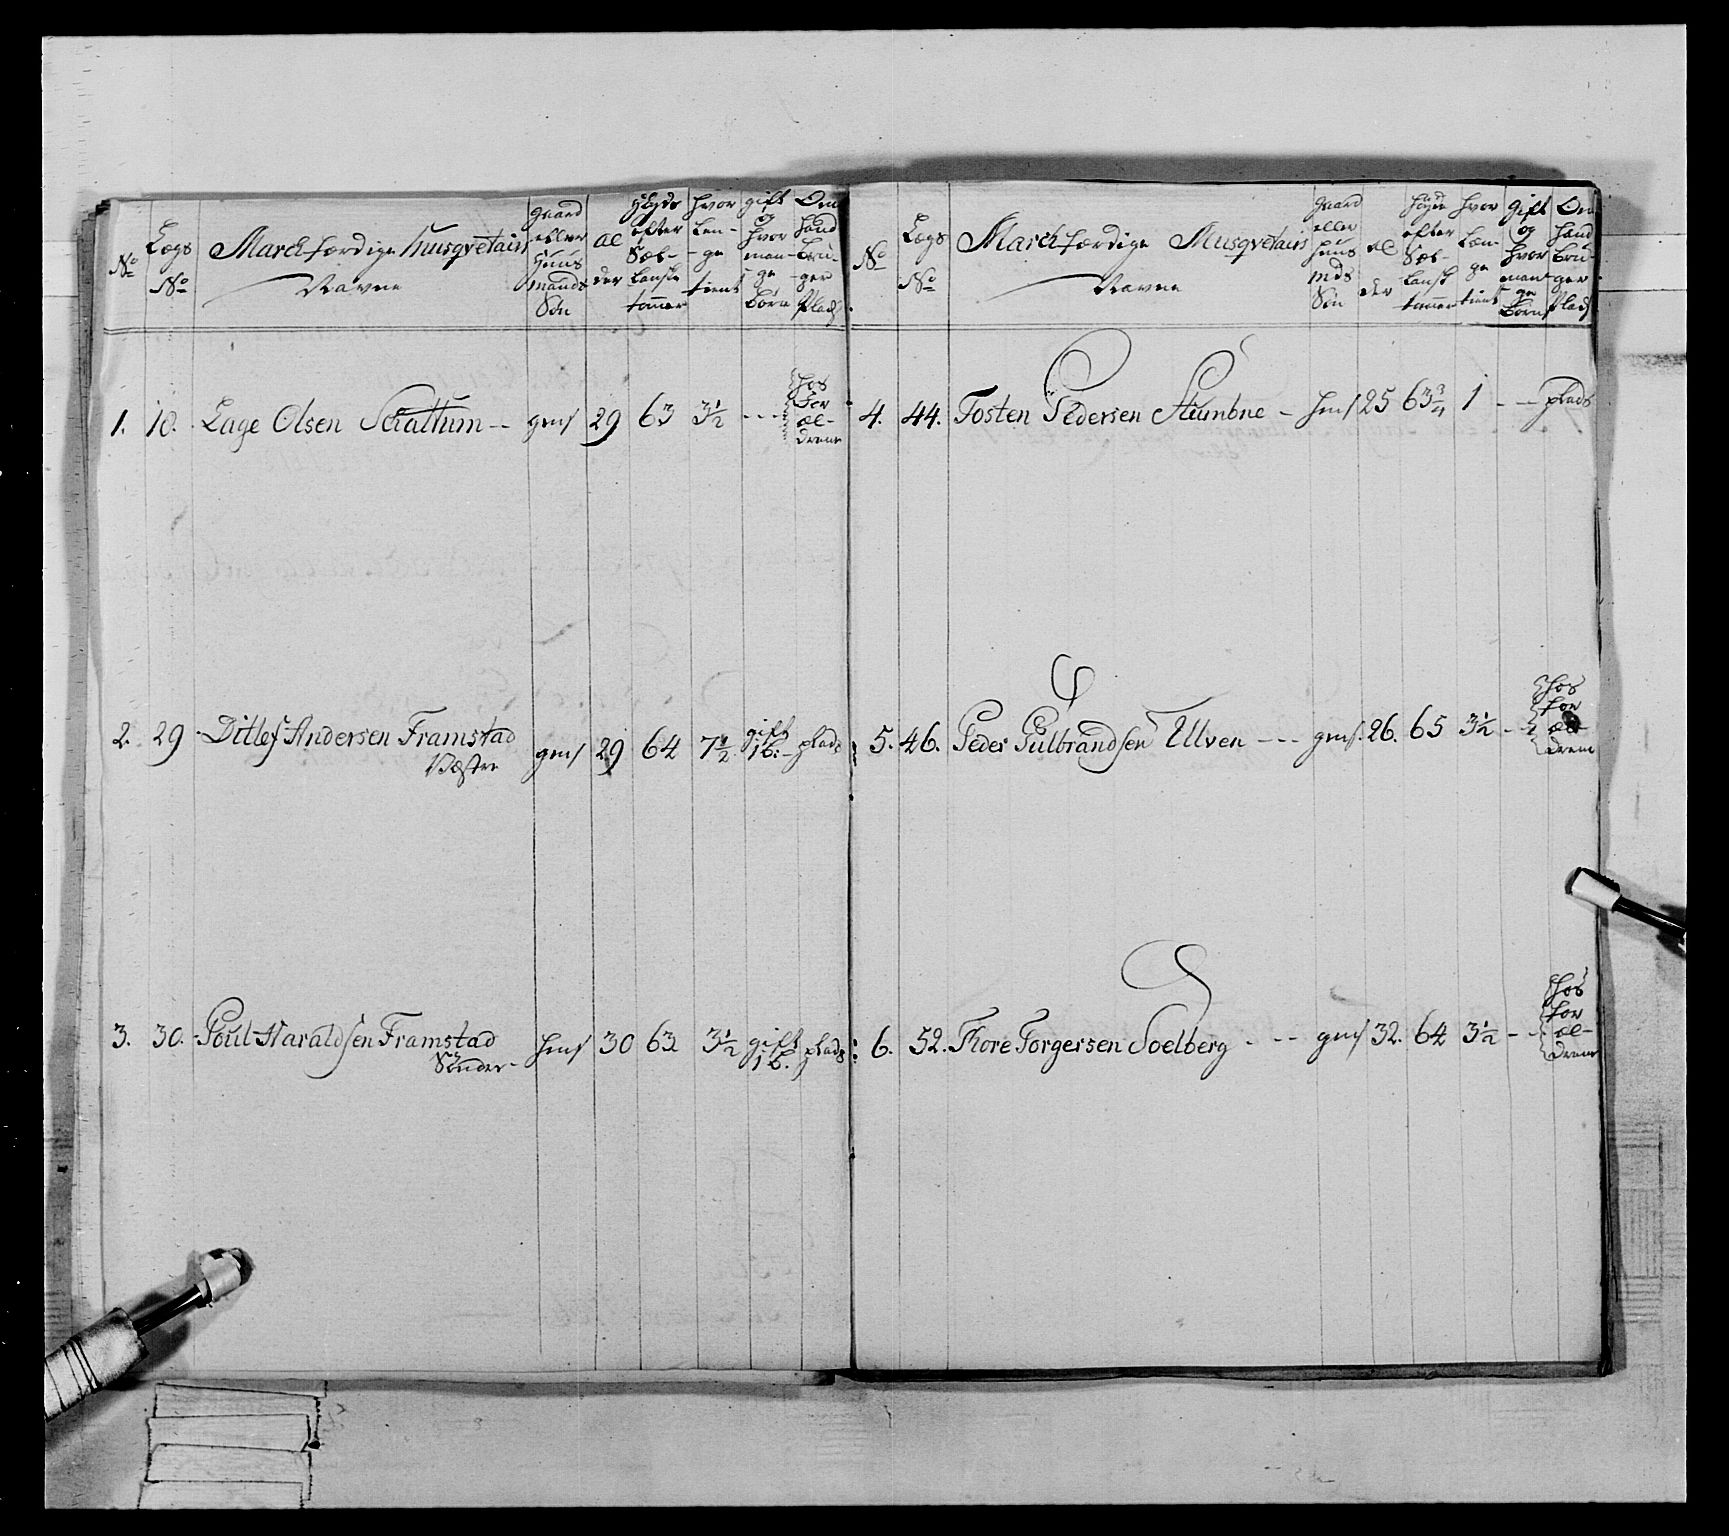 No
Lægs No
Marchfærdige Musqvetairs Navne
gaard eller Huus mands Søn
Al der
Høyde efter Sæl- lansk tommer
hvor Len- ge tient
gift og hvor man- ge børn
Om hand bru- ger Plads
1. 18. Lage Olsen Schattum -- gms 29 63 3½ --- hos For æl- drene
2. 29. Ditlef Andersen Framstad Væstre gms 29 64 7½ gift 1 b. plads
3. 30. Poul Haraldsen Framstad Sönder hms 30 63 3½ gift 1 b. plads
No
Lægs No
Marchfærdige Musqvetairs Navne
gaard eller huus mds Søn
Al der
höyde efter Sæl- lansk tommer
hvor Læn- ge tient
gift og hvor man- ge børn
Om hand bru- ger Plads
4. 44. Tosten Pedersen Stumbne - hms 25 63¾ 1 -- plads
5. 46. Peder Gulbrandsen Ulven --- gms. 26. 65 3½ -- hos for æl- drene
6. 52. Thore Torgersen Soelberg --- gms 32. 64 3½ -- hos for æl- drene